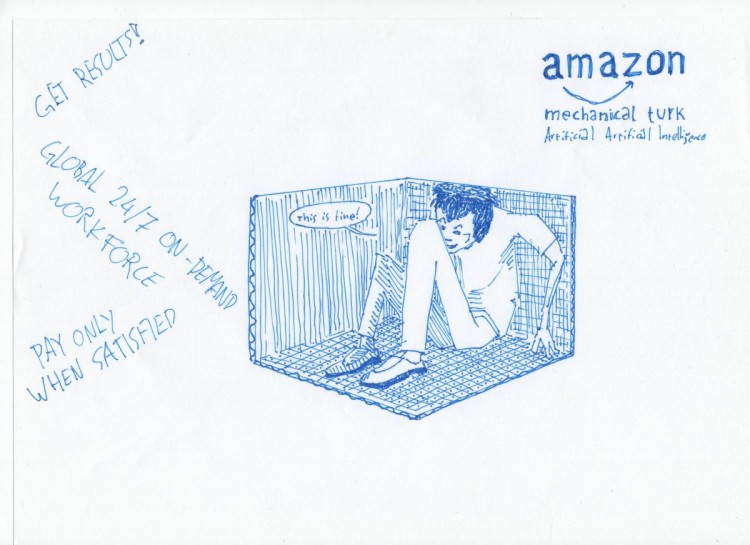 GET RESULTS!
GLOBAL 24/7 ON-DEMAND
WORKFORCE
PAY ONLY
WHEN SATISFIED
This is fine!
amazon
mechanical turk
Artificial Artificial Intelligence